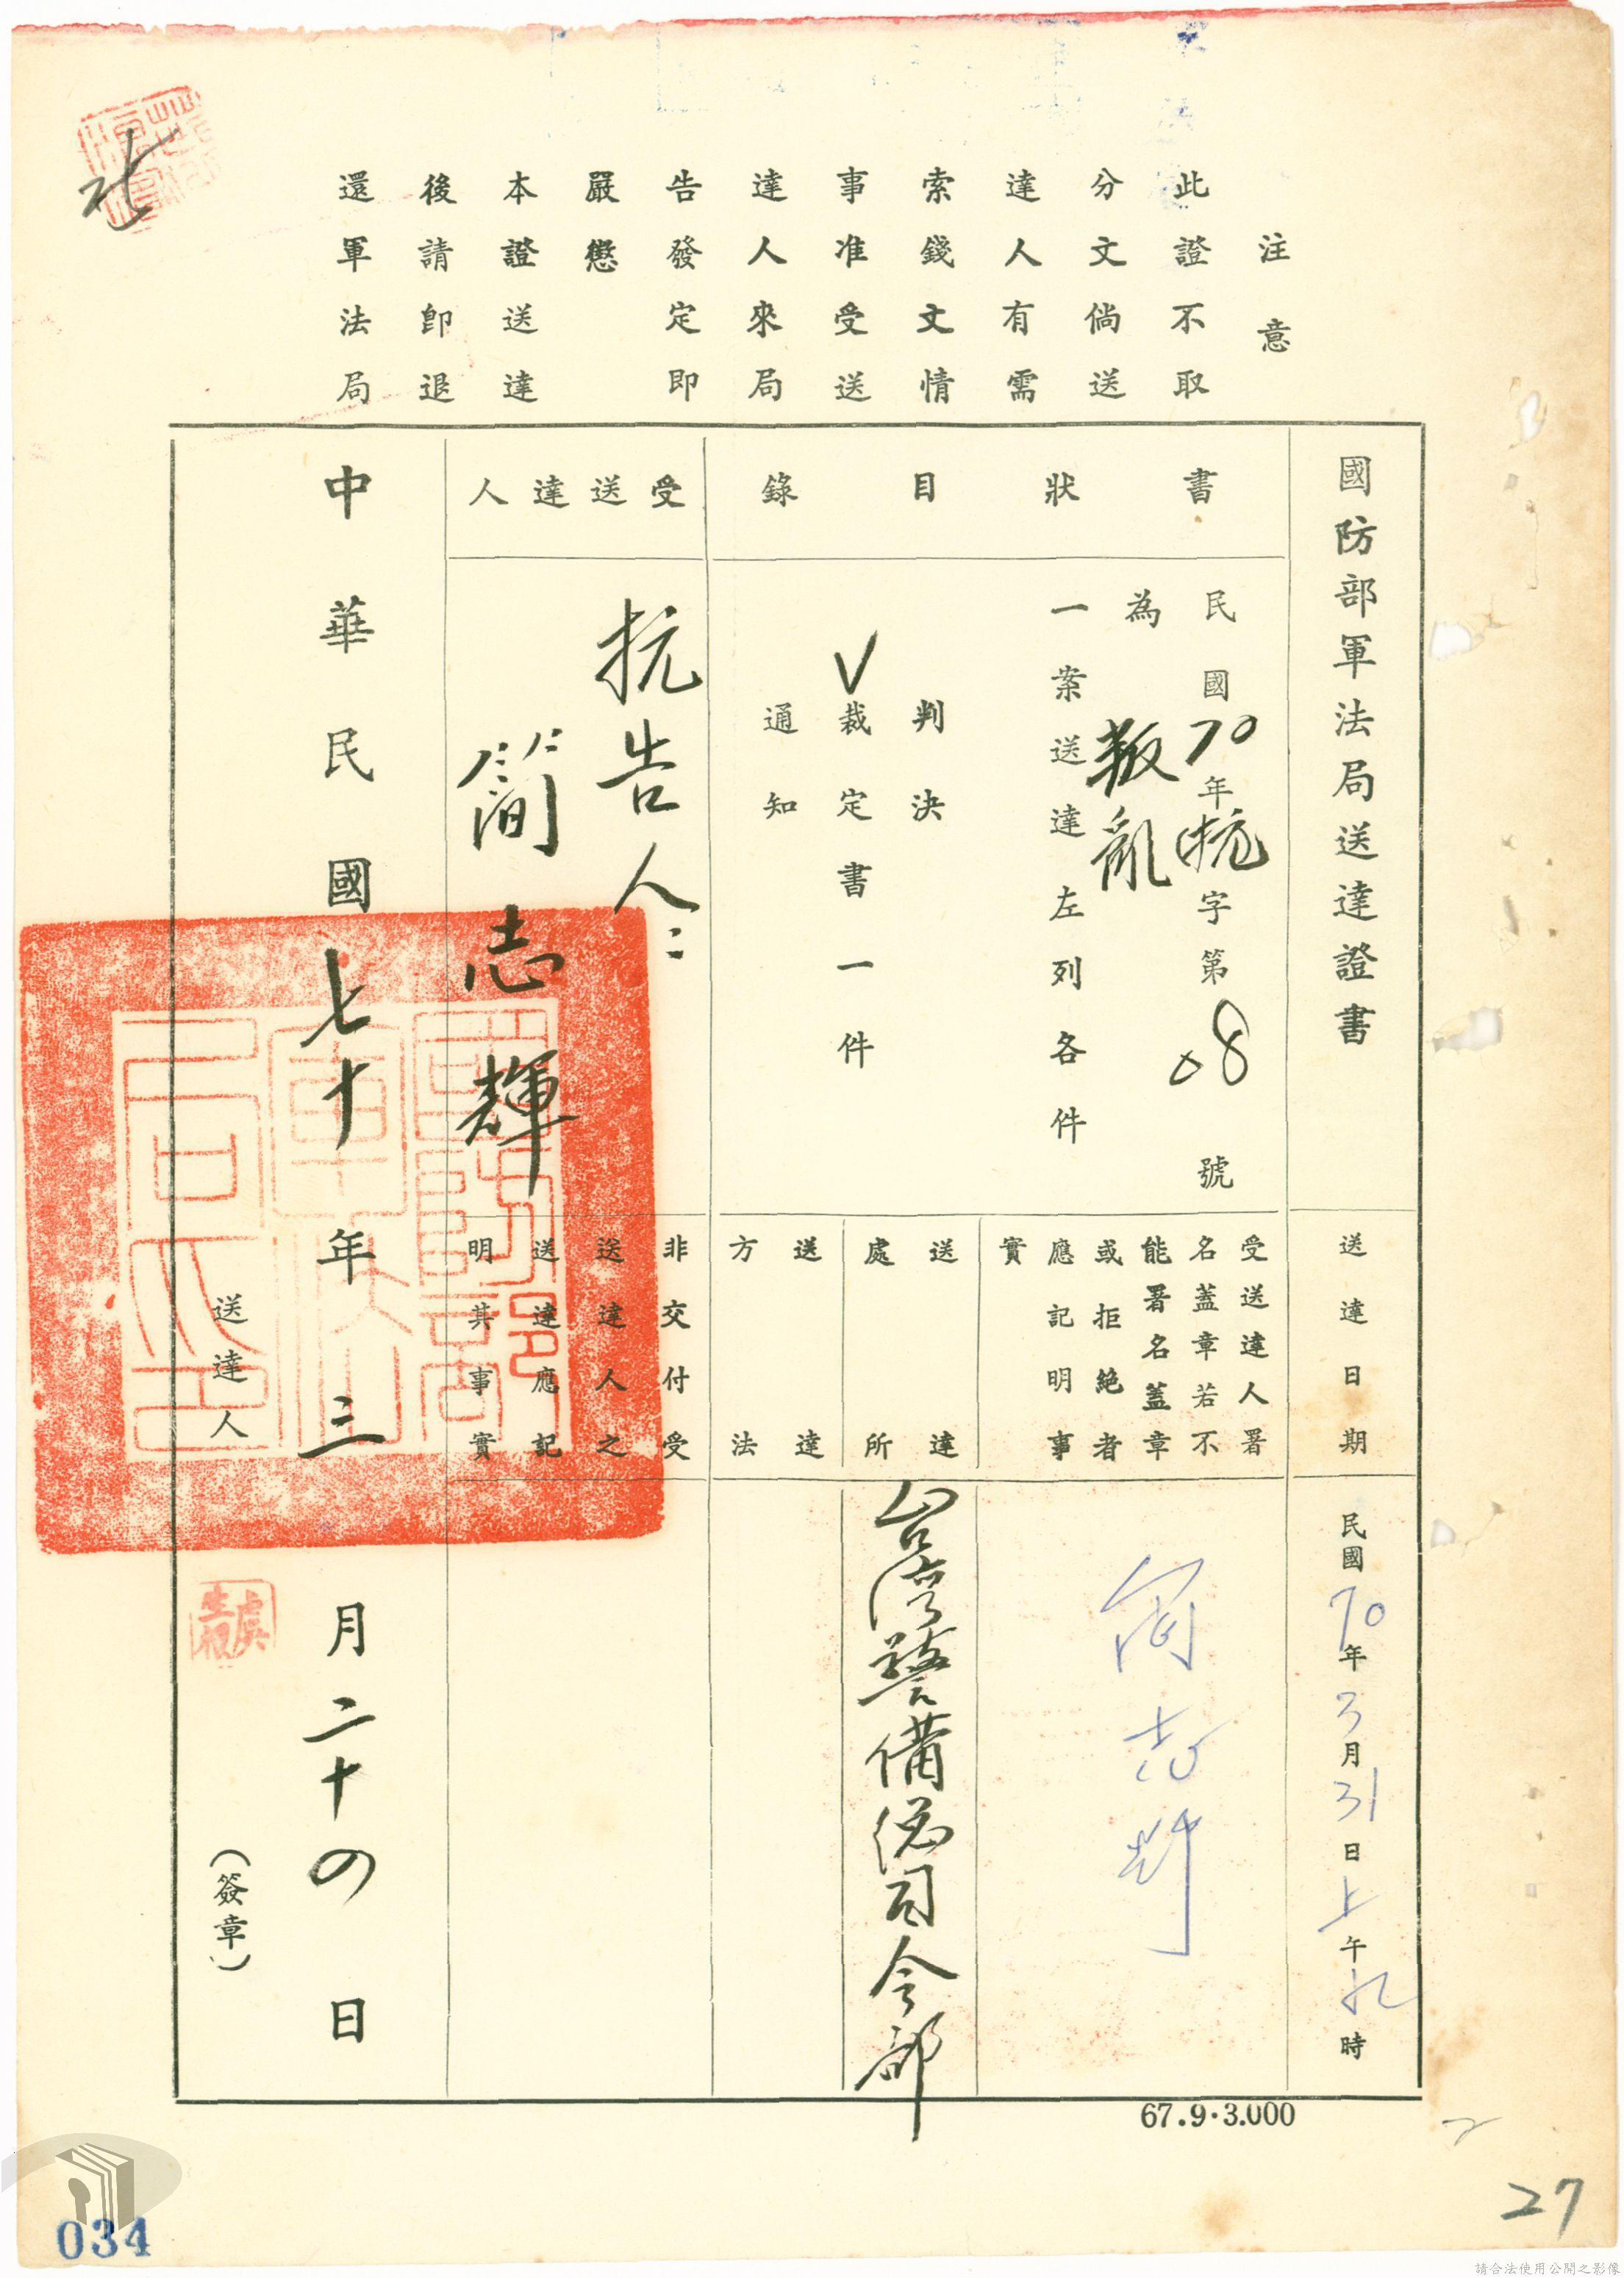 注意
此證不取
分文倘送
達人有需
索錢文情
事准受送
達人來局
告發定即
嚴懲
本證送達
後請卽退
還軍法局
國防部軍法局送達證書
送達日期
民國70年3月31日上午九時
書狀目錄
民國70年抗字第08號
為叛亂
一案送達左列各件
判決
V裁定書一件
通知
受送達人署
名蓋章若不
能署名蓋章
或拒絕者
應記明事
實
簡志輝
送達
處所
台灣警備總司令部
送達
方法
受送達人
抗告人:
簡志輝
非交付受
送達人之
送達應記
明其事實
中華民國七十年三月二十四日
送達人
(簽章)
67.9.3.000
27
034
請合法使用公開之影像